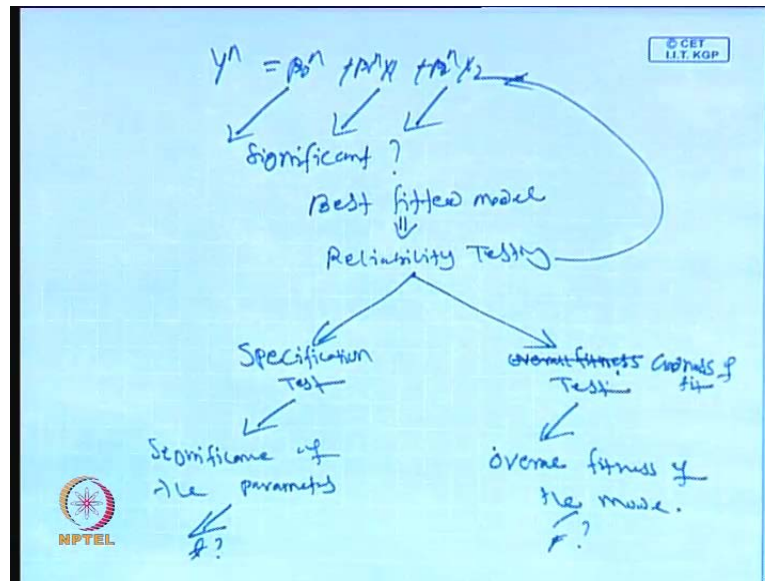 © CET
I.I.T. KGP
Y^ = β0^ + β1^X1 + β2^X2
Significant ?
Best fitted model
Reliability Testing
Specification Test
Goodness of fit Test
Significance of the parameters
overall fitness of the model.
t ?
F ?
NPTEL